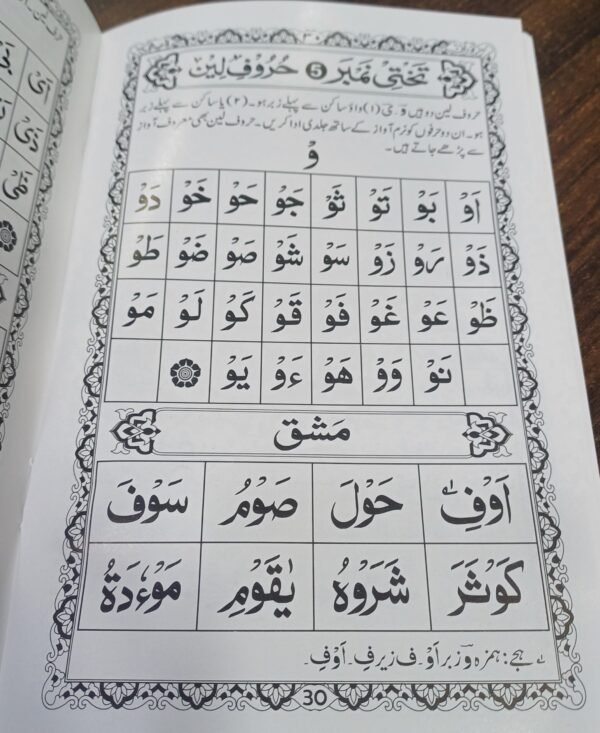 تختی نمبر 5 حُرُوفِ لِیْن
حروف لین دو ہیں وْ یْ (۱) واؤ ساکن سے پہلے زبر ہو۔ (۲) یا ساکن سے پہلے زبر
ہو۔ ان دو حرفوں کو نرم آواز کے ساتھ جلدی ادا کریں۔ حروف لین بھی معروف آواز
سے پڑھے جاتے ہیں۔
وْ
اَوْ بَوْ تَوْ ثَوْ جَوْ حَوْ خَوْ دَوْ
ذَوْ رَوْ زَوْ سَوْ شَوْ صَوْ ضَوْ طَوْ
ظَوْ عَوْ غَوْ فَوْ قَوْ كَوْ لَوْ مَوْ
نَوْ وَوْ هَوْ ءَوْ يَوْ
مَشق
اَوْفِ حَوْلَ صَوْمُ سَوْفَ
كَوْثَرَ شَرَوْهُ يٰقَوْمِ مَوْءٗدَةُ
ہجے: ہمزہ وْ زبر اَوْ۔ ف زیر فِ۔ اَوْفِ۔
30